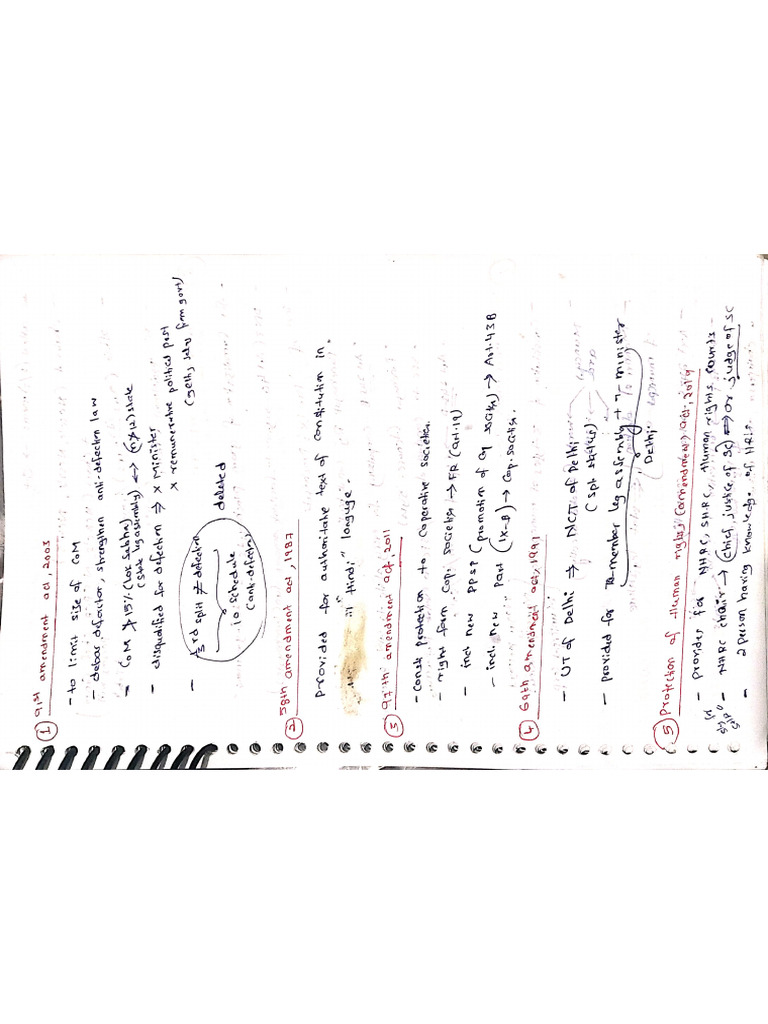 ① 91st amendment act, 2003
- to limit size of CoM
- debar defector, strengthen anti-defection law
- CoM ≯ 15% (Lok Sabha)
(State leg assembly) ↔ (n≮12) state
- disqualified for defection ⇒ x Minister
x remunerative political post
- 1/3rd split ≠ defection
10 schedule
(anti-defection)
deleted
② 58th amendment act, 1987
Provided for authoritative text of constitution in
" Hindi" languge.
③ 97th amendment act, 2011
- Const protection to Coperative societies.
- right form Cop. societies → FR (art-19)
- incl new DPSP (promotion of cop societies) → Art-43B
- incl. new Part (IX-B) → Cop. societies.
④ 69th amendment act, 1991
- UT of Delhi ⇒ NCT of Delhi
(spl status)
- provided for 70-member leg assembly + 7-minister
Delhi
⑤ Protection of Human rights (amendment) act, 2019
- Provides for NHRC, SHRC, Human rights courts
- NHRC chair → (chief justice of SC) ↔ or judge of SC
- 2 person having knowledge of HRts.